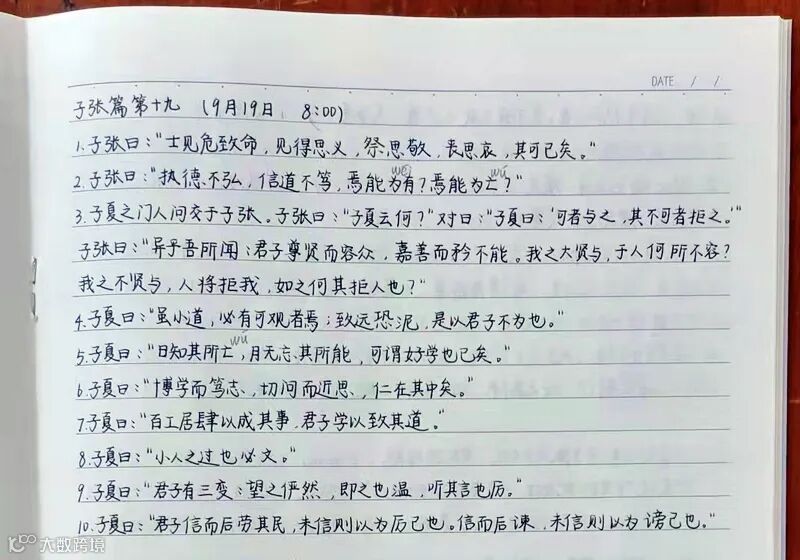 DATE / /
子张篇第十九 (9月19日 8:00)
1.子张曰:“士见危致命,见得思义,祭思敬,丧思哀,其可已矣。”
wéi wú
2.子张曰:“执德不弘,信道不笃,焉能为有?焉能为亡?”
3.子夏之门人问交于子张。子张曰:“子夏云何?”对曰:“子夏曰:‘可者与之,其不可者拒之。’”
子张曰:“异乎吾所闻:君子尊贤而容众,嘉善而矜不能。我之大贤与,于人何所不容?
我之不贤与,人将拒我,如之何其拒人也?”
4.子夏曰:“虽小道,必有可观者焉;致远恐泥,是以君子不为也。”
wú
5.子夏曰:“日知其所亡,月无忘其所能,可谓好学也已矣。”
6.子夏曰:“博学而笃志,切问而近思,仁在其中矣。”
7.子夏曰:“百工居肆以成其事,君子学以致其道。”
8.子夏曰:“小人之过也必文。”
9.子夏曰:“君子有三变:望之俨然,即之也温,听其言也厉。”
10.子夏曰:“君子信而后劳其民,未信则以为厉己也。信而后谏,未信则以为谤己也。”
大数跨境